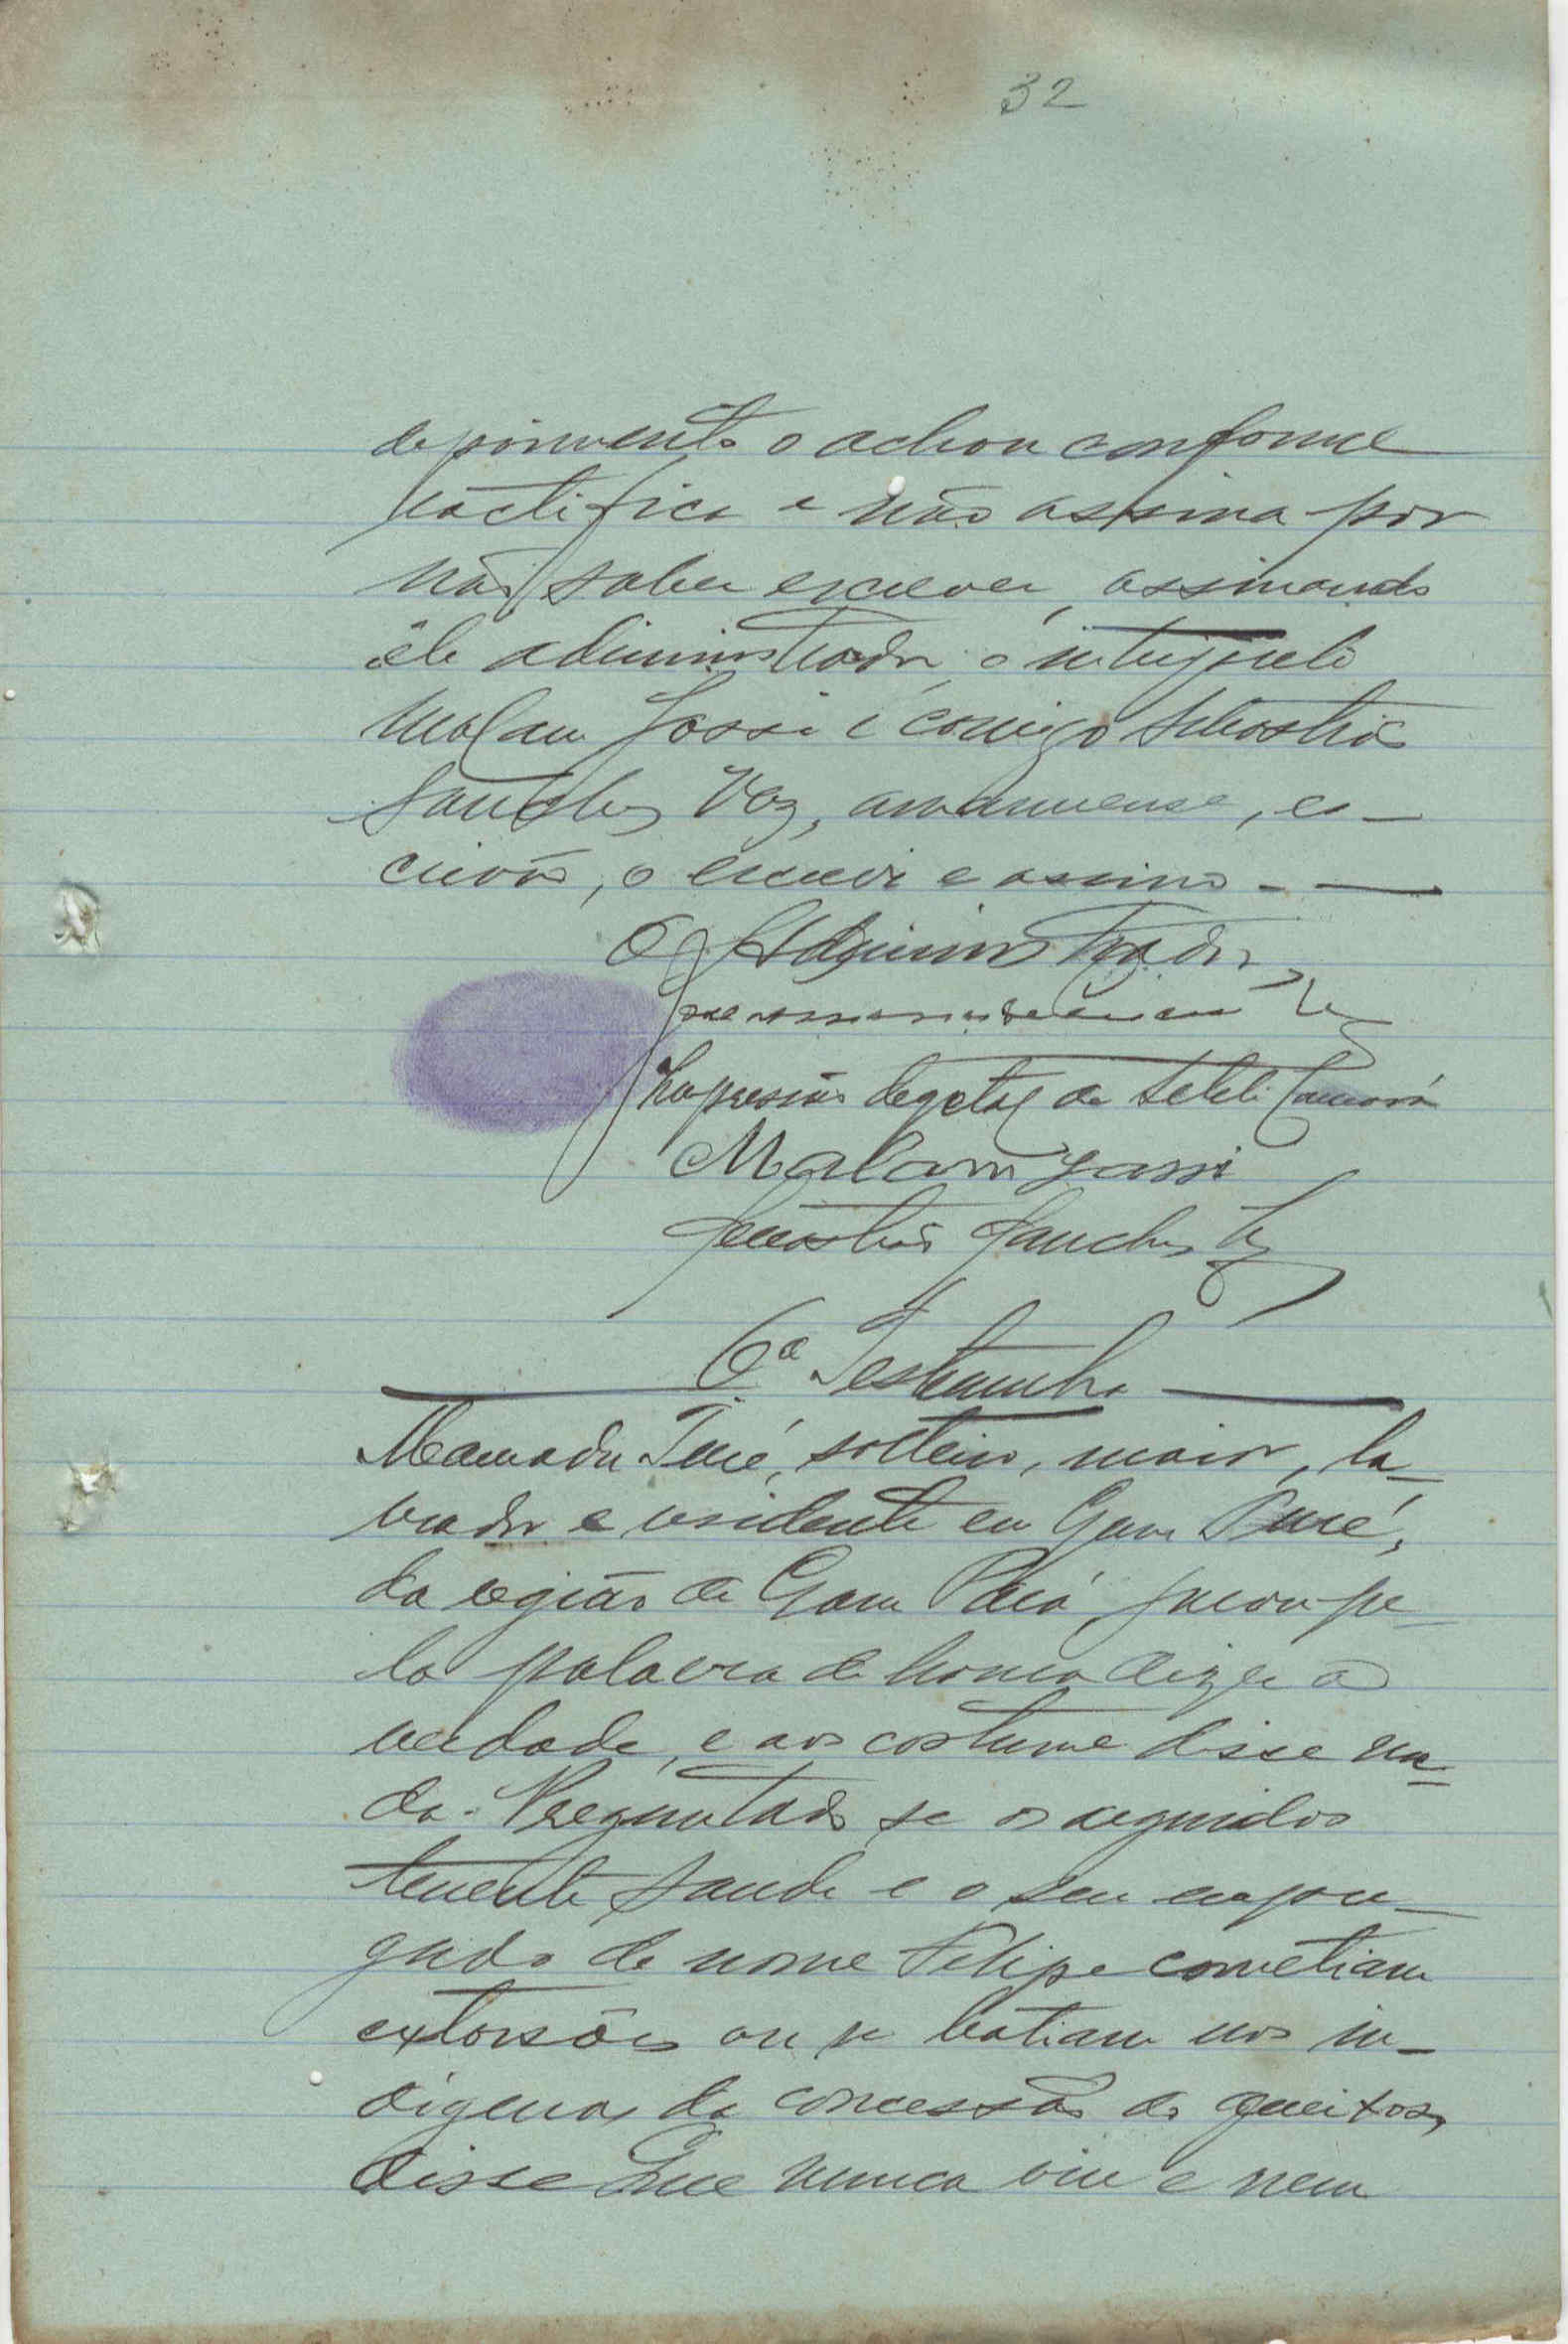 32
depoimento o achou conforme
ractifica e não assina por
não saber escrever, assinando
êle administrador, o intreprete
Malam Jassi e comigo Sebastião
Sanches Vaz, amanuense, es-
crivão, o escrevi e assino - —
O Administrador,
Impressão degetal de Seleli Camará
Malam Jassi
Sebastião Sanches Vaz
6ª Testemunha
Mamadu Turé, solteiro, maior, la-
vrador e residente em Gam Turé,
da região de Gam Pará, jurou pe-
la palavra de honra dizer a
verdade, e aos costume disse na-
da. Preguntado se os arguidos
tenente Saude e o seu empre-
gado de nome Felipe cometiam
extorsões ou se batiam nos in-
digenas da concessão do queixoso,
disse que nunca viu e nem